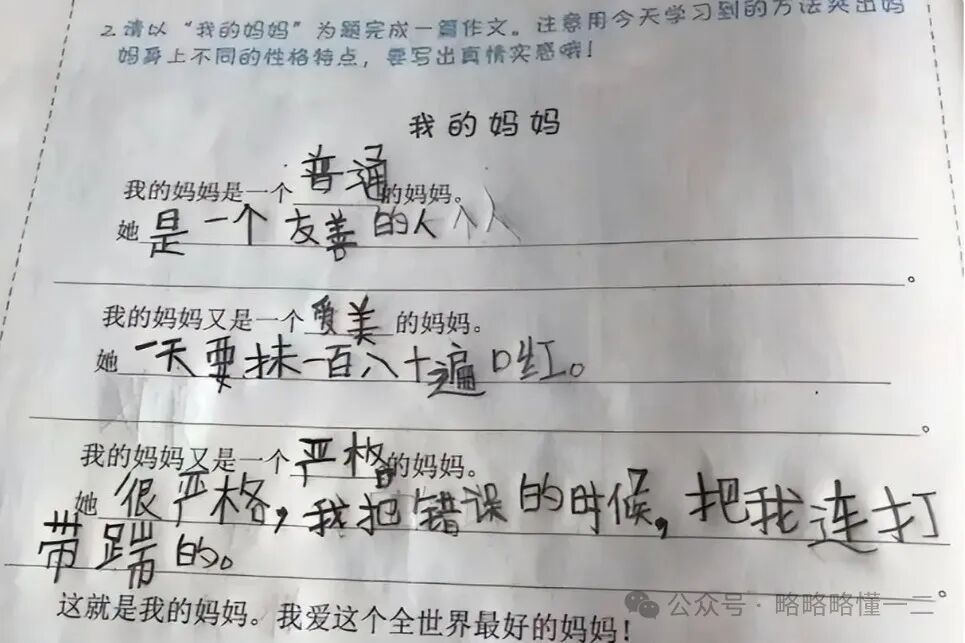 2.请以“我的妈妈”为题完成一篇作文。注意用今天学习到的方法突出妈
妈身上不同的性格特点，要写出真情实感哦！
我的妈妈
我的妈妈是一个普通的妈妈。
她是一个友善的人个人
。
我的妈妈又是一个爱美的妈妈。
她一天要抹一百八十遍口红。
。
我的妈妈又是一个严格的妈妈。
她很严格，我把错误的时候，把我连打
带踹的。
。
这就是我的妈妈。我爱这个全世界最好的妈妈！
公众号·略略略懂一二